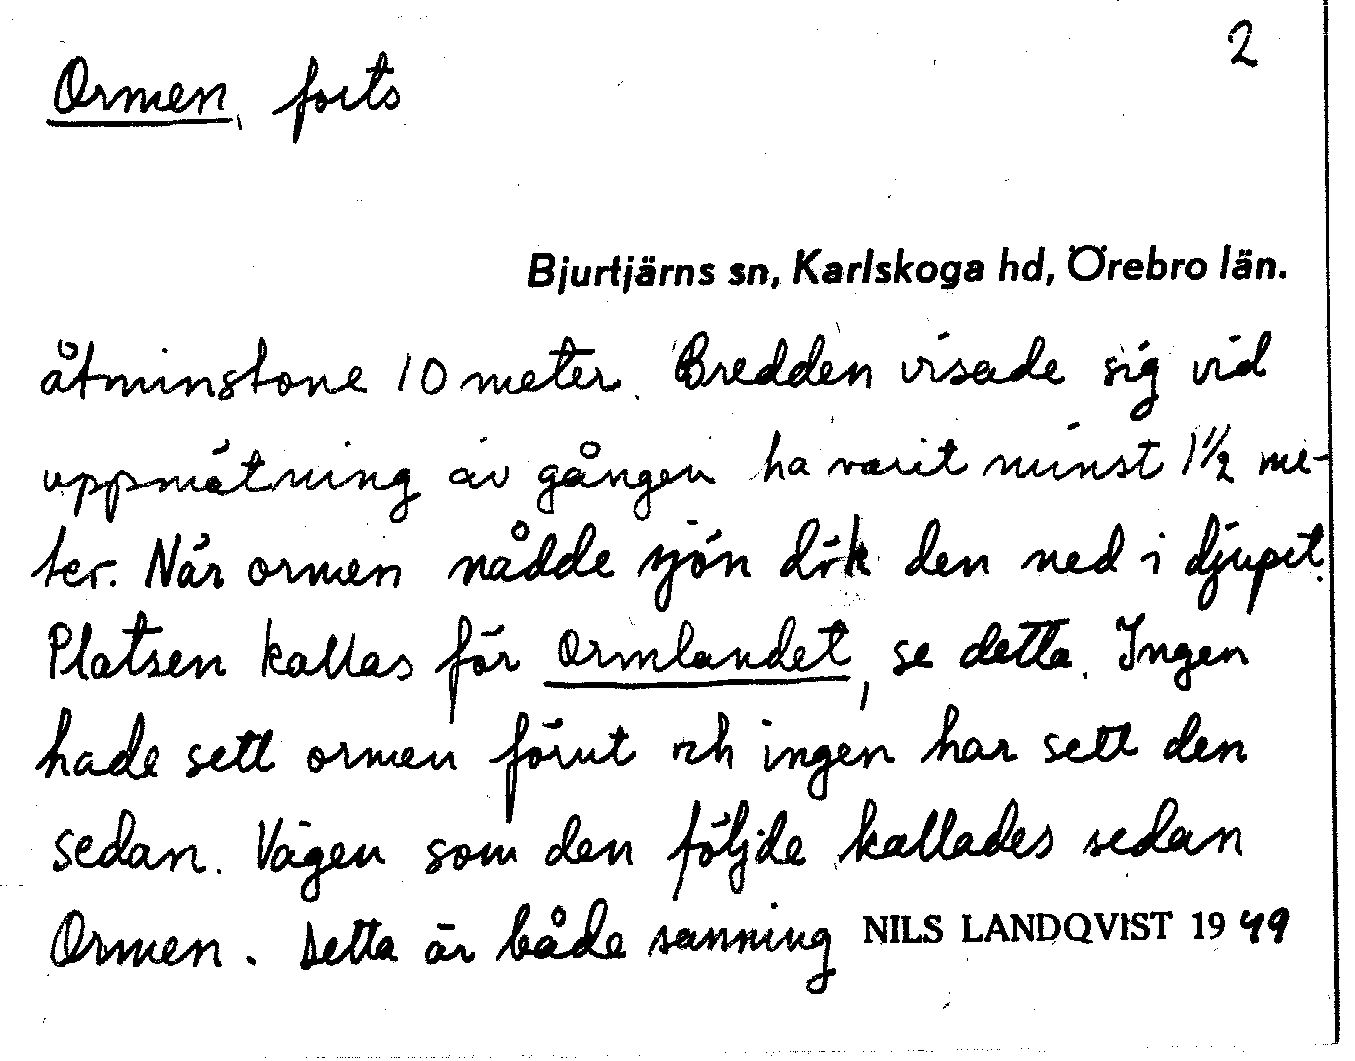 2
Ormen, forts
Bjurtjärns sn, Karlskoga hd, Örebro län.
åtminstone 10 meter. Bredden visade sig vid
uppmätning av gången ha varit minst 1½ me-
ter. När ormen nådde sjön dök den ned i djupet.
Platsen kallas för Ormlandet, se detta. Ingen
hade sett ormen förut och ingen har sett den
sedan. Vägen som den följde kallades sedan
Ormen. Detta är både sanning NILS LANDQVIST 1949